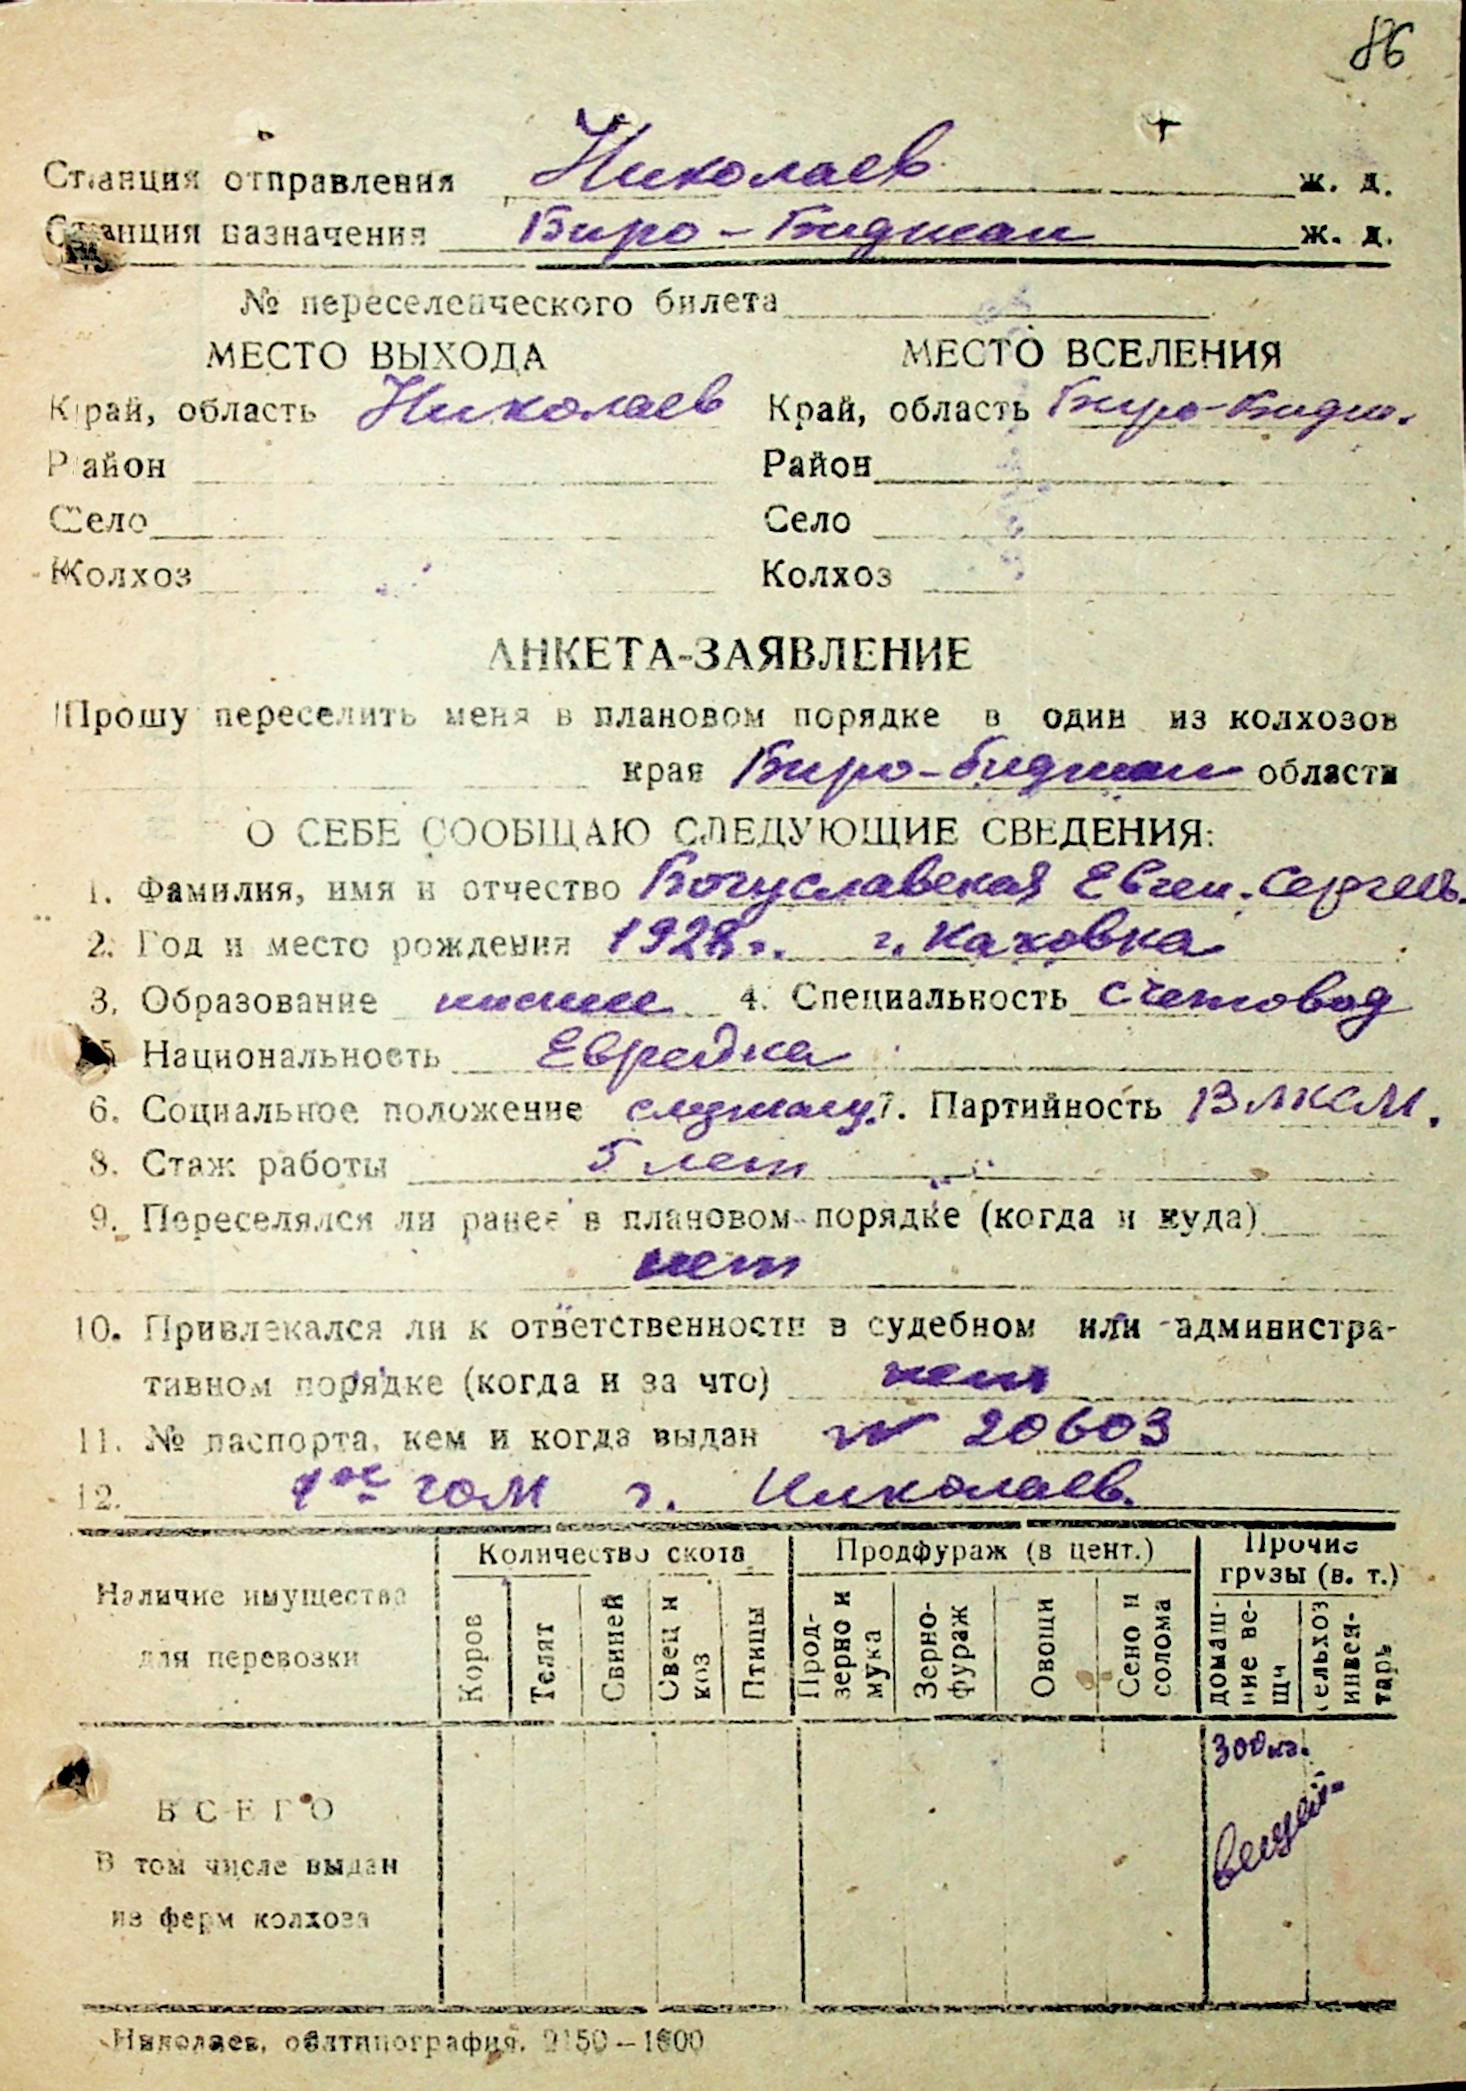 86
Станция отправления Николаев ж. д.
Станция назначения Биро-Биджан ж. д.
№ переселенческого билета
МЕСТО ВЫХОДА МЕСТО ВСЕЛЕНИЯ
Край, область Николаев Край, область Биро-Бидж.
Район Район
Село Село
Колхоз Колхоз
АНКЕТА-ЗАЯВЛЕНИЕ
Прошу переселить меня в плановом порядке в один из колхозов
края Биро-биджан области
О СЕБЕ СООБЩАЮ СЛЕДУЮЩИЕ СВЕДЕНИЯ:
1. Фамилия, имя и отчество Богуславская Евген. Сергеев.
2. Год и место рождения 1928 г. г. Каховка
3. Образование низшее 4. Специальность счетовод
5 Национальность Еврейка
6. Социальное положение служащ. 7. Партийность ВЛКСМ.
8. Стаж работы 5 лет
9. Переселялся ли ранее в плановом порядке (когда и куда)
нет
10. Привлекался ли к ответственности в судебном или администра-
тивном порядке (когда и за что) нет
11. № паспорта, кем и когда выдан № 20603
12. 1ое ГОМ г. Николаев.
Наличие имущества для перевозки
Количество скота Продфураж (в цент.) Прочие грузы (в. т.)
Коров Телят Свиней Овец и коз Птицы Прод-зерно и мука Зерно-фураж Овощи Сено и солома домаш-ние ве-щи сельхоз инвен-тарь
300 кг.
вещей
ВСЕГО
В том числе выдан
из ферм колхоза
Николаев, облтипография. 2150—1600